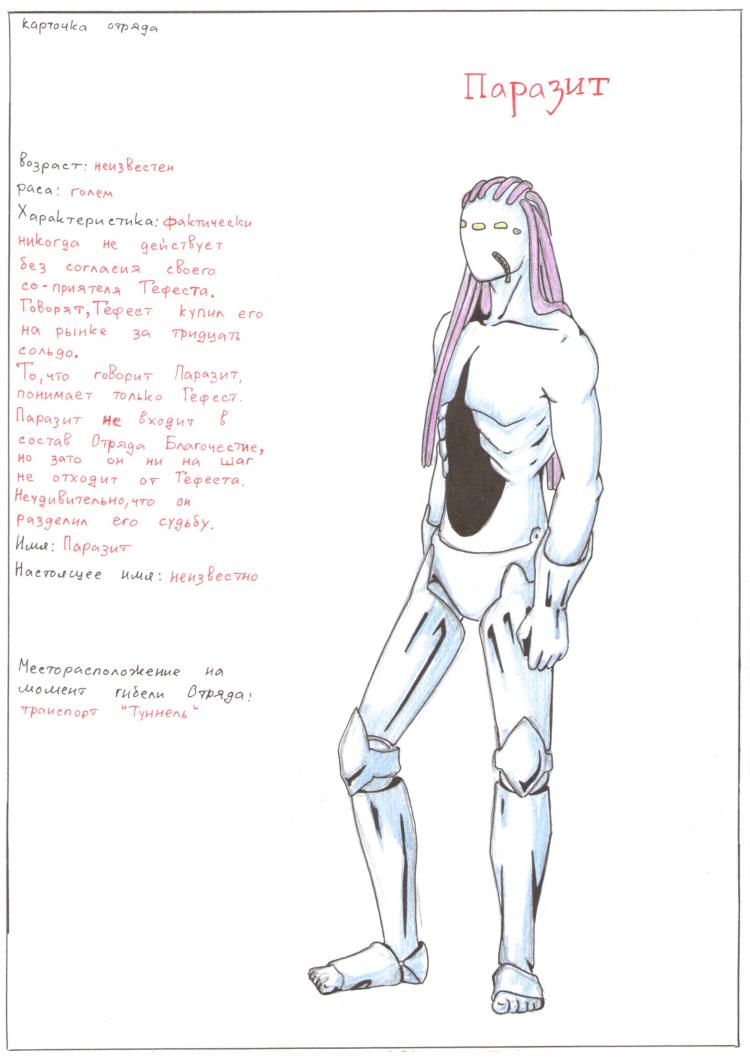 карточка отряда
Паразит
возраст: неизвестен
раса: голем
Характеристика: фактически
никогда не действует
без согласия своего
со-приятеля Гефеста.
Говорят, Гефест купил его
на рынке за тридцать
сольдо.
То, что говорит Паразит,
понимает только Гефест.
Паразит не входит в
состав Отряда Благочестие,
но зато он ни на шаг
не отходит от Гефеста.
Неудивительно, что он
разделил его судьбу.
Имя: Паразит
Настоящее имя: неизвестно
Месторасположение на
момент гибели Отряда:
транспорт "Туннель"